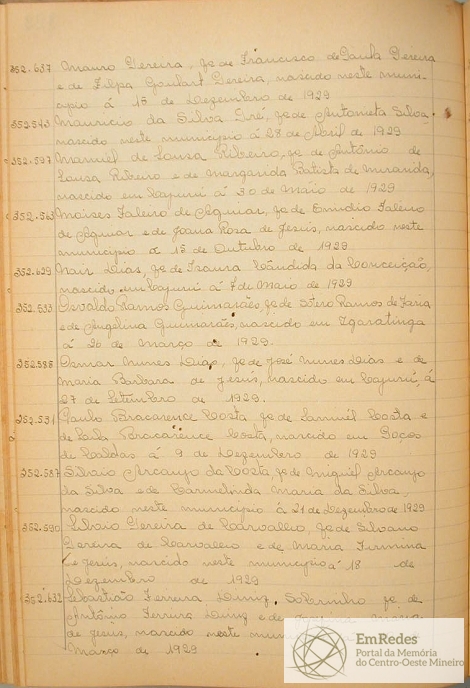 352.637 Mauro Pereira, fo de Francisco de Paula Pereira
e de Filpa Goulart Pereira, nascido neste muni-
cipio á 15 de Dezembro de 1929
352.543 Mauricio da Silva fo de Antonieta Silva
nascido neste municipio á 28 de Abril de 1929
352.597 Manuel de Sousa Ribeiro, fo de Antônio de
Sousa Ribeiro e de Margarida Batista de Miranda,
nascido em Cajurú á 30 de Maio de 1929
352.563 Moises Faleiro de Aguiar, fo de Emidio Faleiro
de Aguiar e de Joana Rosa de Jesus, nascido neste
municipio a 15 de Outubro de 1929
352.629 Nair Dias, fo de Isaura Cândida da Conceição,
nascido em Cajurú á de Maio de 1929
352.533 Osvaldo Ramos Guimarães, fo de Ramos de Faria
e de Angelina Guimarães, nascido em Igaratinga
á 20 de Março de 1929.
352.588 Osmar Nunes Dias, fo de José Nunes Dias e de
Maria Barbara de Jesus, nascido em Cajurú, á
27 de Setembro de 1929.
352.591 Paulo Bracarence Costa fo de Samuel Costa e
de Bracarence Costa, nascido em Poços
de Caldas á 9 de Dezembro de 1929
352.587 Arcanjo da Costa, fo de Miguel Arcanjo
da Silva e de Carmelinda Maria da Silva,
nascido neste municipio á 21 de Dezembro de 1929
352.590 Silvaio Pereira de Carvalho, fo de Silvano
Pereira de Carvalho e de Maria Firmina
de Jesus, nascido neste municipio á 18 de
Dezembro de 1929
352.632 Sebastião Ferreira Diniz Sobrinho fo de
Antônio Ferreira Diniz e de Maria
de Jesus, nascido neste
Março de 1929
EmRedes
Portal da Memória
do Centro-Oeste Mineiro